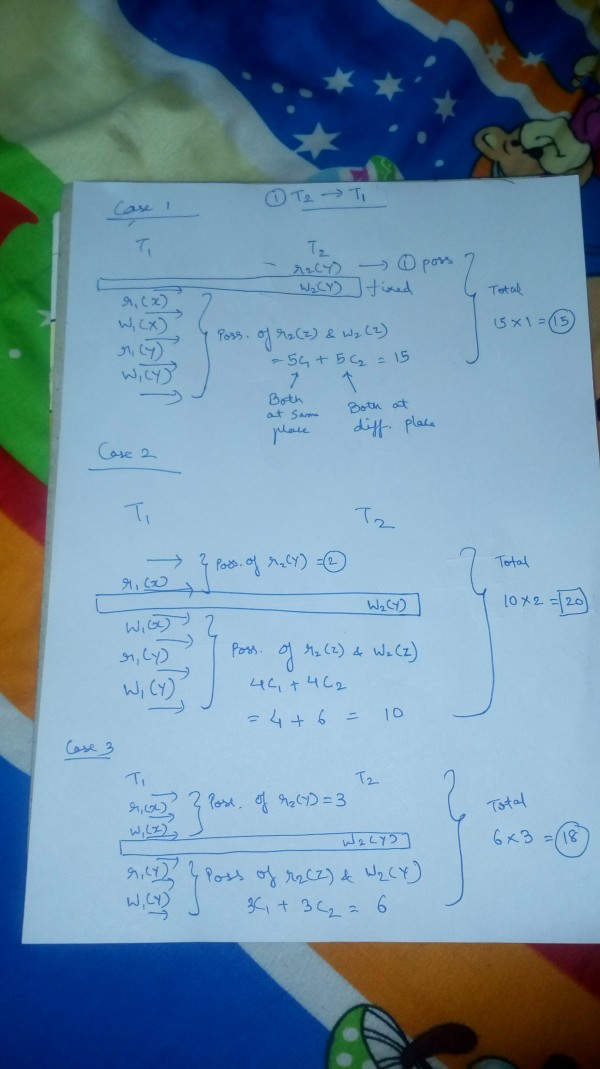 Case 1
① T2 → T1
T1 T2
r2(Y) → ① poss
w2(Y) fixed
r1(x)
w1(x)
r1(Y)
w1(Y)
Poss. of r2(z) & w2(z)
= 5C1 + 5C2 = 15
Both at same place
Both at diff. place
Total
15 × 1 = 15
Case 2
T1 T2
Poss. of r2(Y) = 2
r1(x)
w2(Y)
w1(x)
r1(Y)
w1(Y)
Poss. of r2(z) & w2(z)
4C1 + 4C2
= 4 + 6 = 10
Total
10 × 2 = 20
Case 3
T1 T2
r1(x)
w1(x)
Poss. of r2(Y) = 3
w2(Y)
r1(Y)
w1(Y)
Poss of r2(z) & w2(Y)
3C1 + 3C2 = 6
Total
6 × 3 = 18